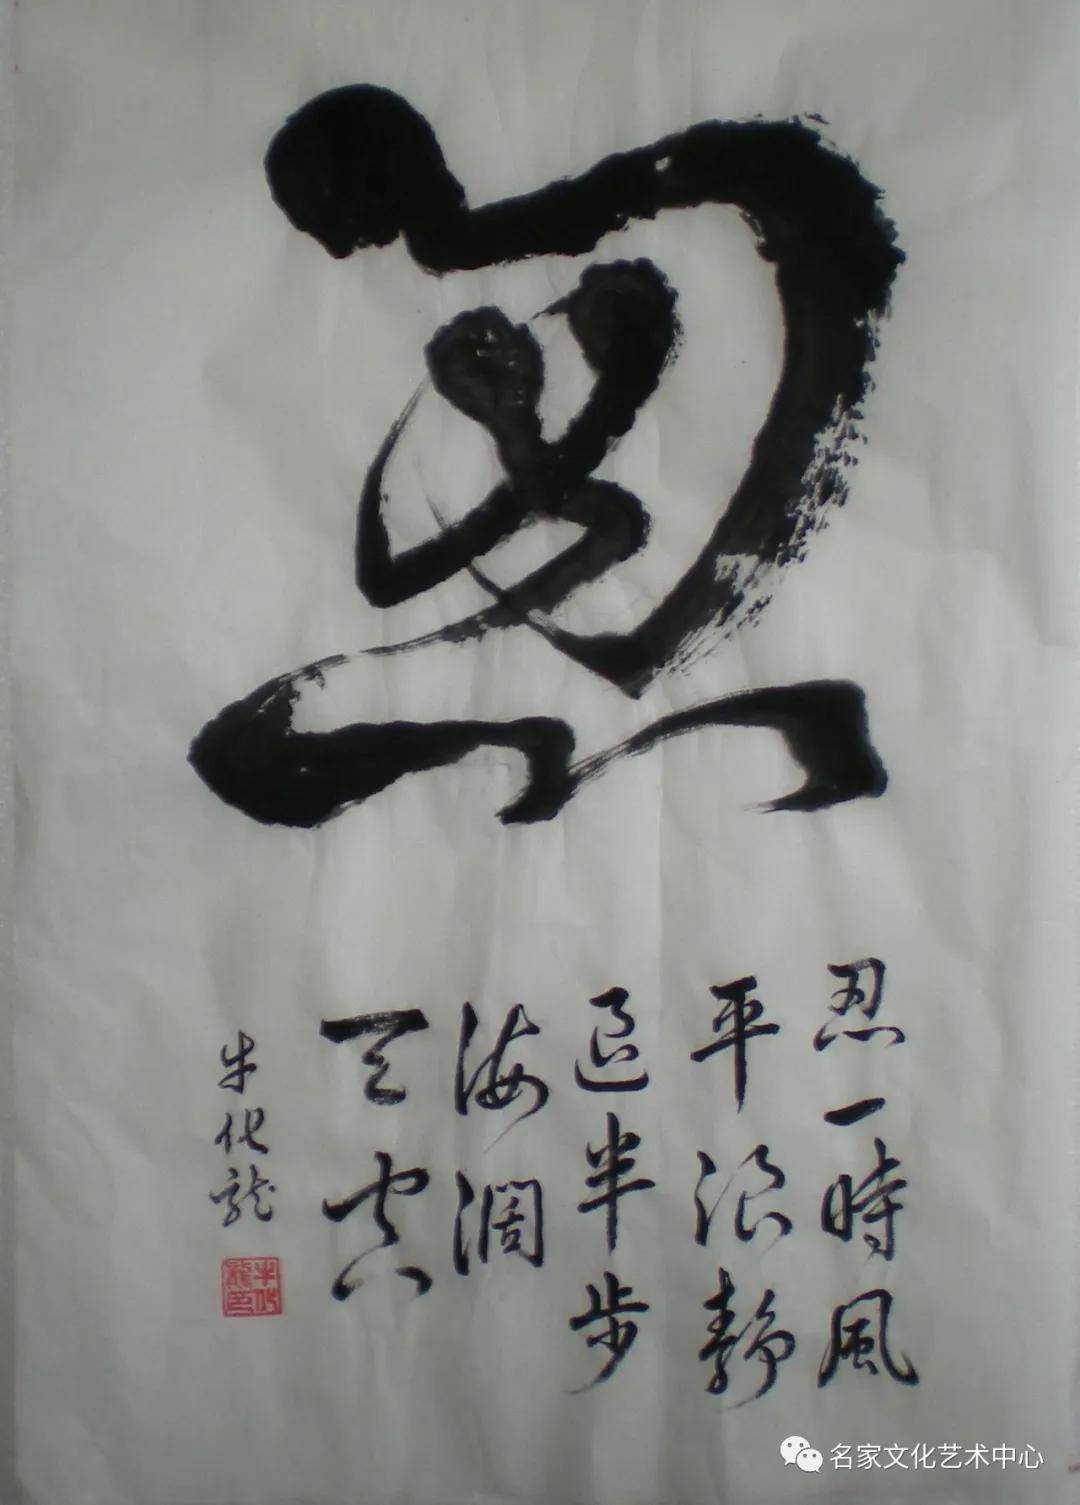 忍
忍一時風
平浪静
退半步
海濶
天空
牛化龍
牛化龍印
名家文化艺术中心